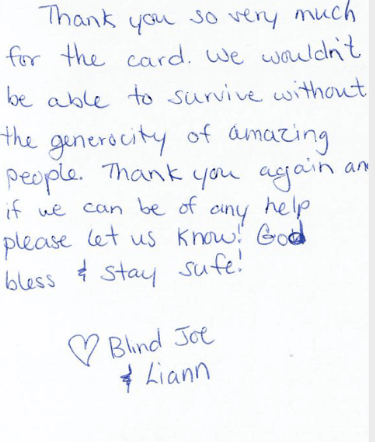 Thank you so very much
for the card. We wouldn't
be able to survive without
the generocity of amazing
people. Thank you again an
if we can be of any help
please let us know! God
bless & stay safe!
♡ Blind Joe
& Liann